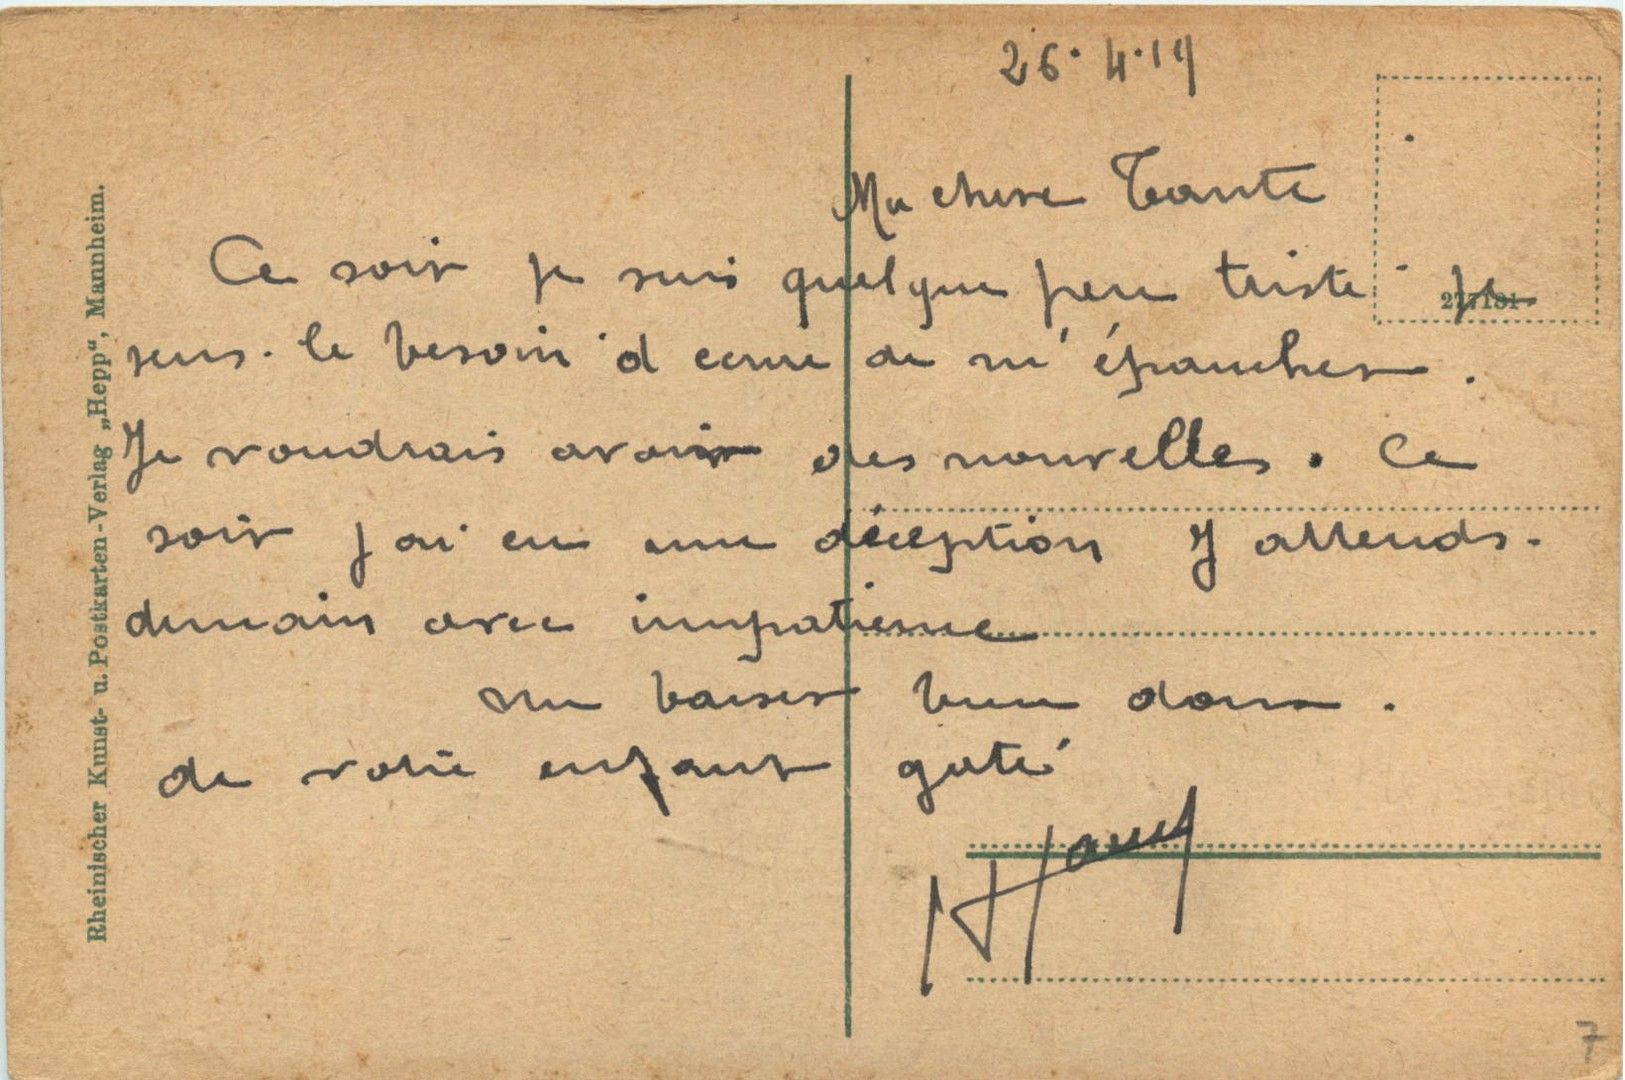 26.4.19
Ma chere Tante
Ce soir je suis quelque peu triste je
sens. le besoin d ecrire de m'épancher.
Je voudrais avoir des nouvelles. Ce
soir j ai eu une déception J attends.
demain avec impatience
Un baiser bien doux.
de votre enfant gaté
Rheinischer Kunst- u. Postkarten-Verlag „Hepp“, Mannheim.
277181
7